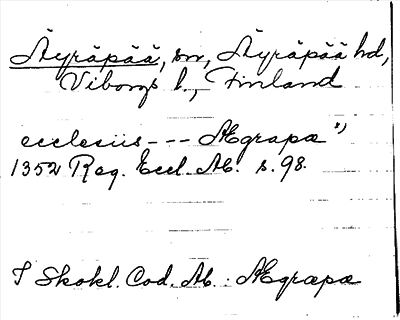 Äyräpää, sn, Äyräpää hd,
Viborgs l., Finland
ecclesiis --- Ægrapæ *)
1352 Reg. Eccl. Ab. s. 98.
I Skokl. Cod. Ab.: Ægrapæ